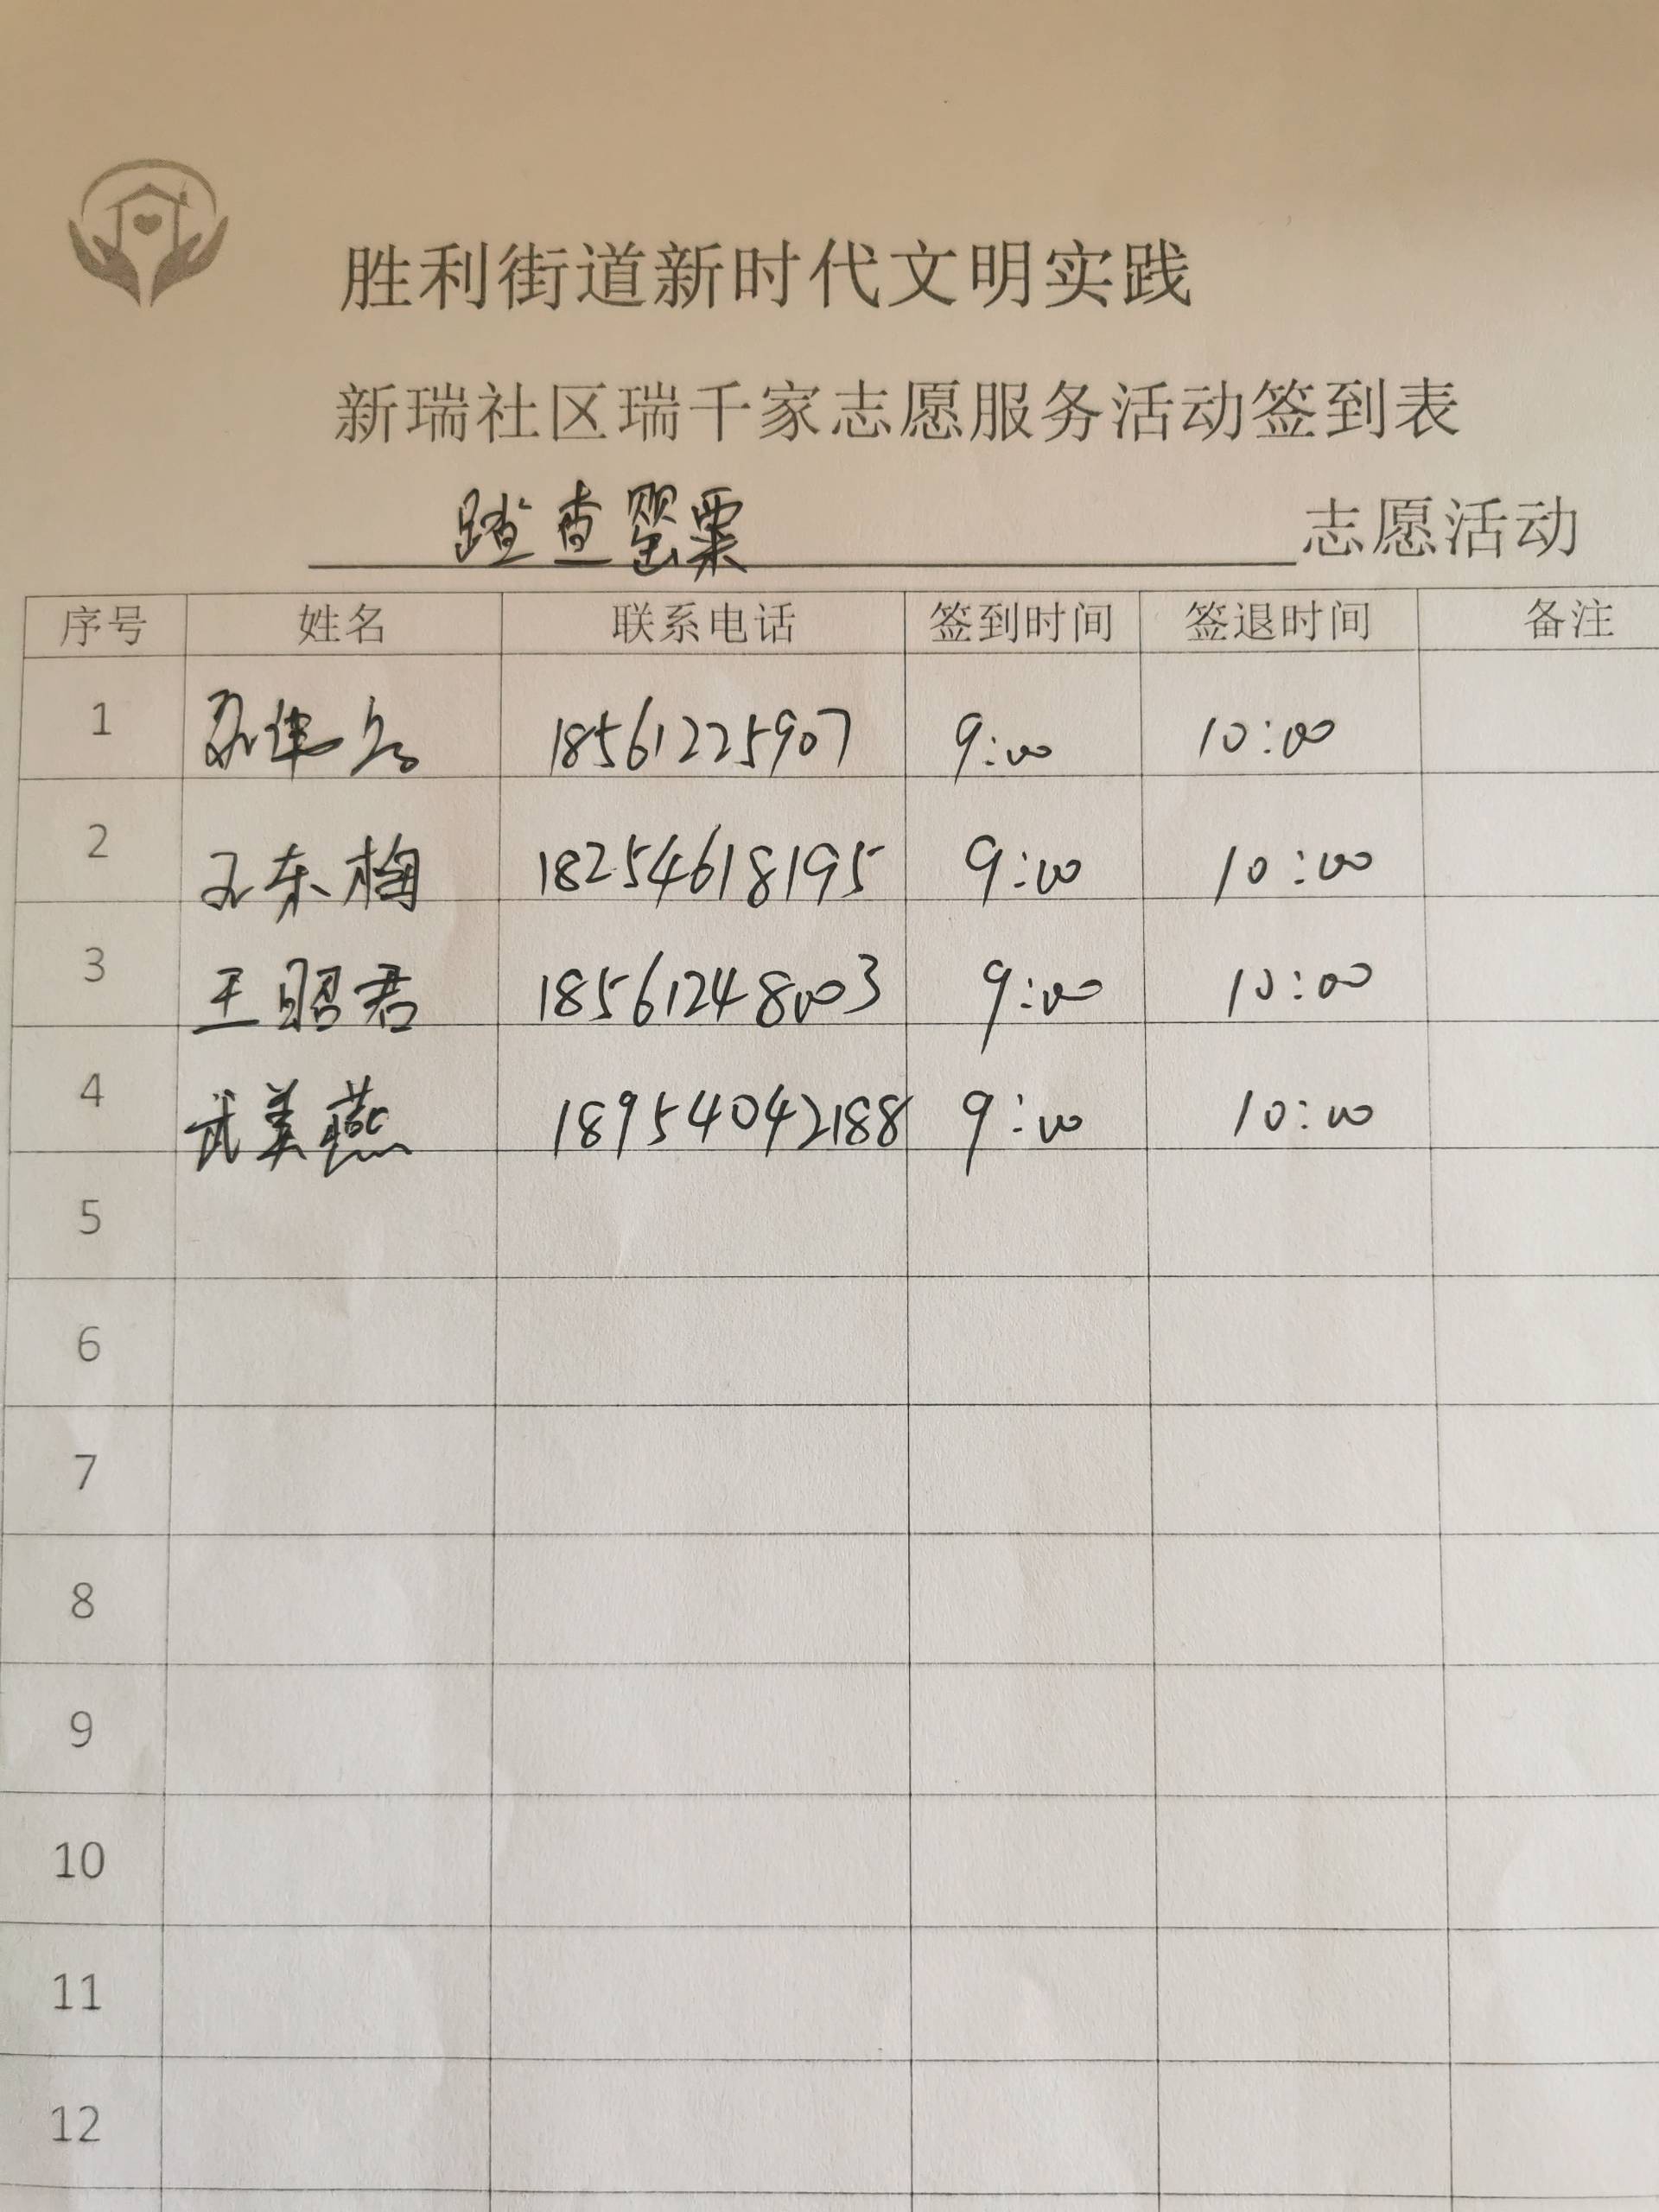 胜利街道新时代文明实践
新瑞社区瑞千家志愿服务活动签到表
踏查罂粟 志愿活动
序号 姓名 联系电话 签到时间 签退时间 备注
1 18561225907 9:00 10:00
2 王东梅 18254618195 9:00 10:00
3 王昭君 18561248003 9:00 10:00
4 武美燕 18954042188 9:00 10:00
5
6
7
8
9
10
11
12